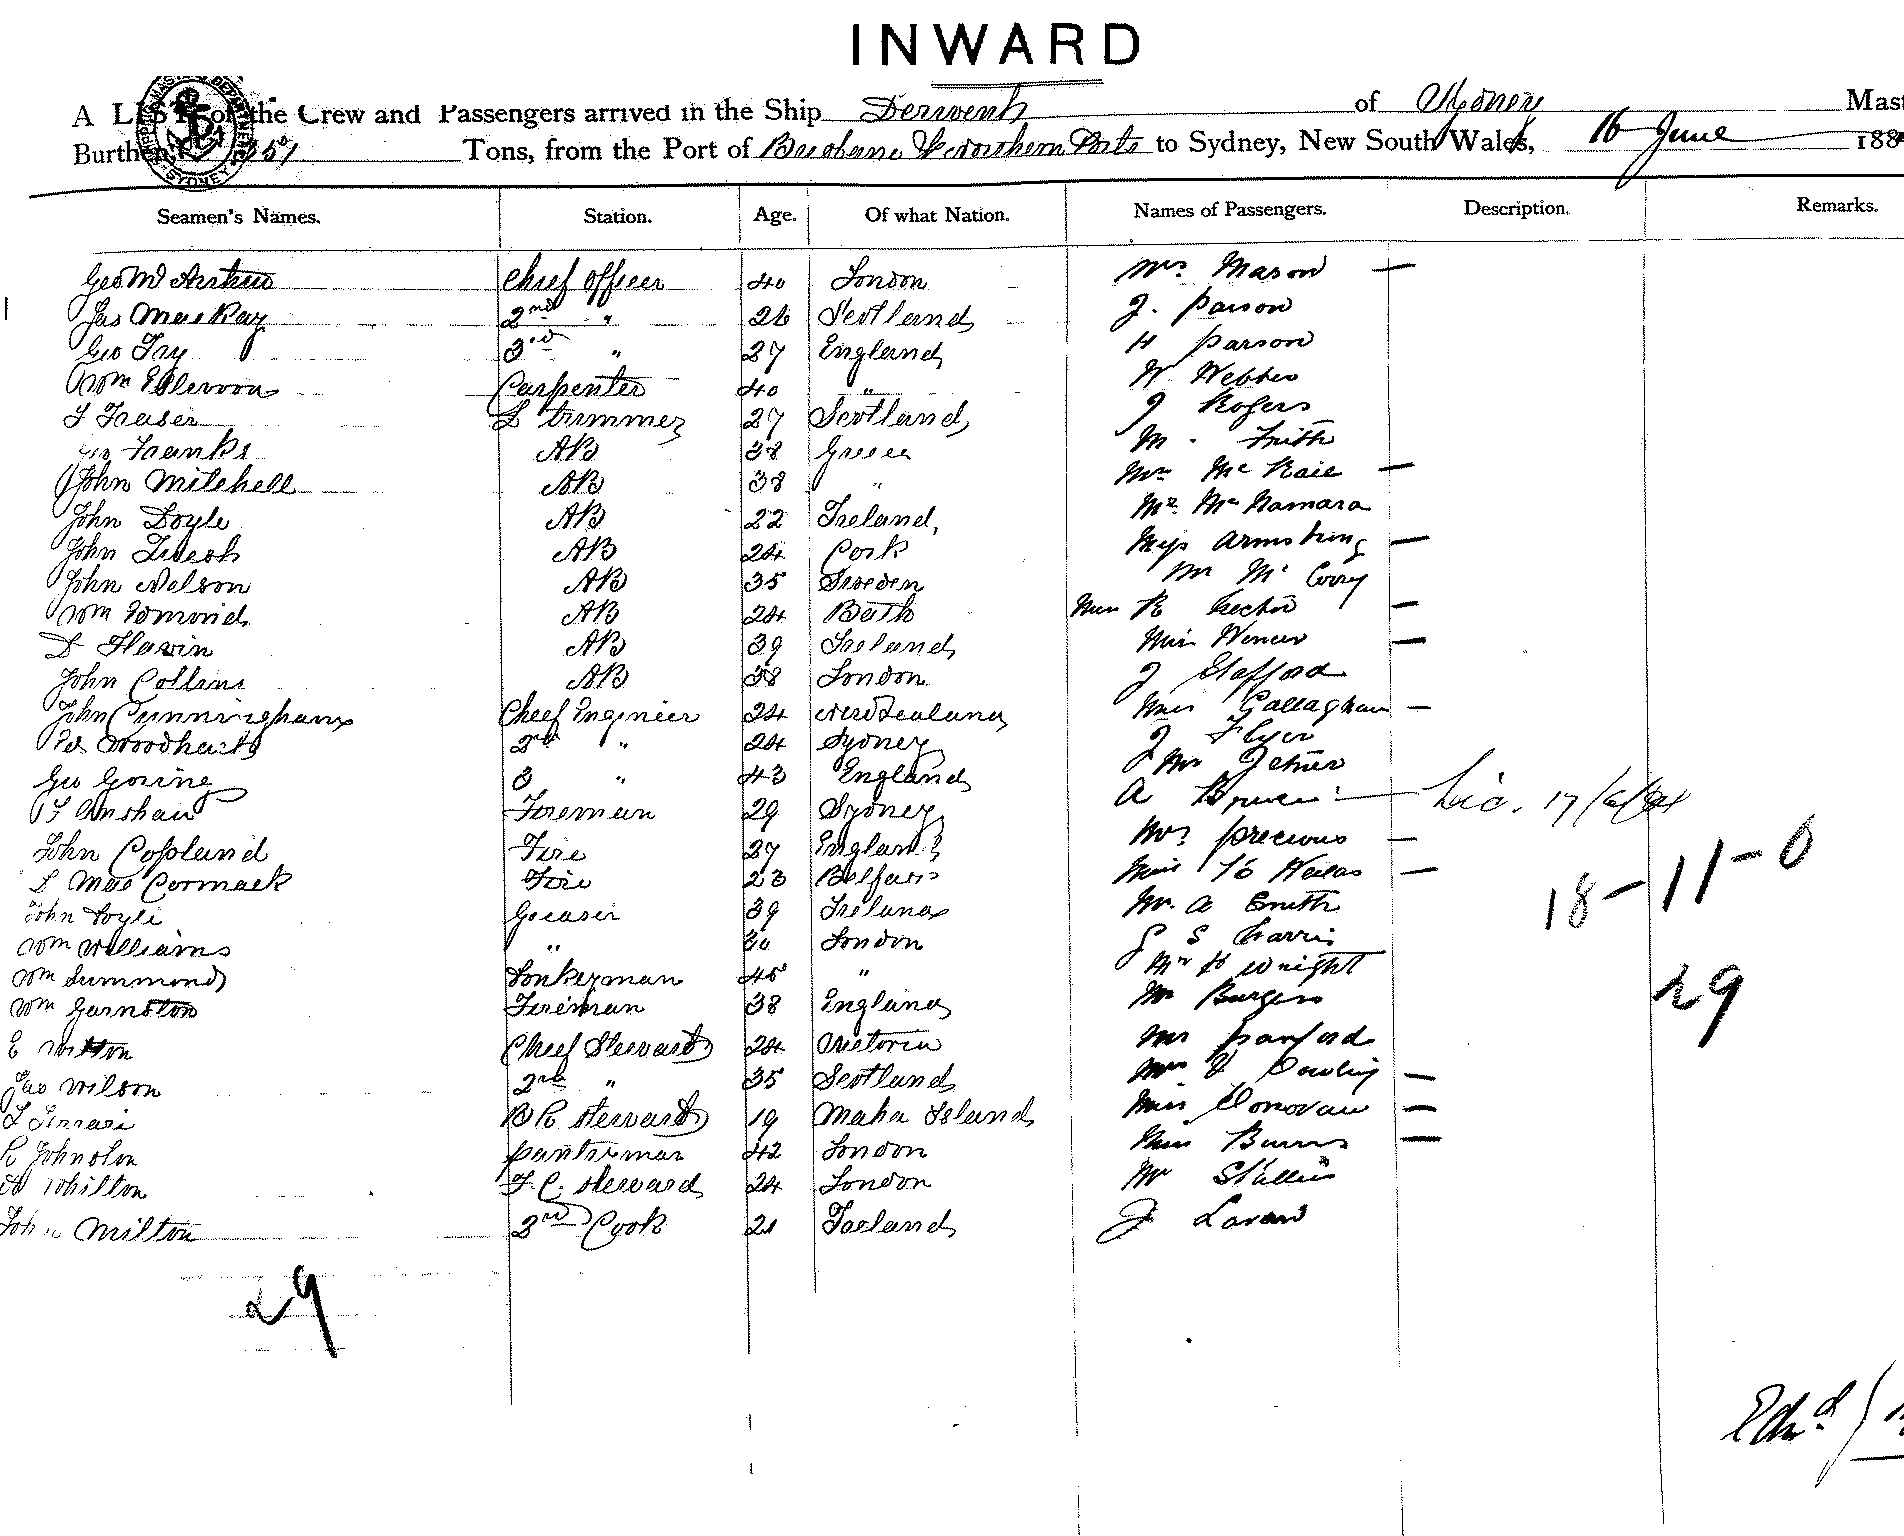 INWARD
A LIST of the Crew and Passengers arrived in the Ship Derwent of Sydney
Burthen 251 Tons, from the Port of Brisbane & Northern Ports to Sydney, New South Wales, 16 June 188
Seamen's Names. Station. Age. Of what Nation. Names of Passengers. Description. Remarks.
Geo Mc Arthur Chief Officer 40 London Mrs Mason —
Jas MacKay 2nd " 26 Scotland J. Parson
Geo Fry 3rd " 27 England H Parson
Wm Carpenter 40 " W. Webber
F Fraser L trimmer 27 Scotland J Rogers
Franks AB 38 Greece M. Frith
John Mitchell AB 38 " Mrs Mc Raie —
John Doyle AB 22 Ireland, Mr Mc Namara
John AB 24 Cork Miss Armstrong —
John Nelson AB 35 Sweden Mr Mc Corry
Wm Edmond AB 24 Bath R Hector —
D Flavin AB 39 Ireland Miss —
John Collins AB 38 London J Stafford
John Cunningham Chief Engineer 24 New Zealand Miss Callaghan —
Woodhurst 2nd " 24 Sydney J
Geo Goring 3 " 43 England Mr
Fireman 29 Sydney A Lic. 17/6/84
John Copland Fire 27 England Mrs Precious —
D MacCormack Fire 23 Belfast Miss — 18-11-0
John Doyle Greaser 39 Ireland Mr. A Smith
Wm Williams " 30 London S Harris
Wm Summond Donkeyman 45 " Mr H Wright
Wm Garnston Fireman 38 England Mr Burgess 29
E Milton Chief Steward 24 Victoria Mr
Jas Wilson 2nd " 35 Scotland Mrs —
F Ferrari B R Steward 19 Malta Island Miss Donovan —
R Johnston Pantryman 42 London Miss Burns —
Whilton F. C. Steward 24 London Mr
John Milton 3rd Cook 21 J Lavan
29
Edwd J